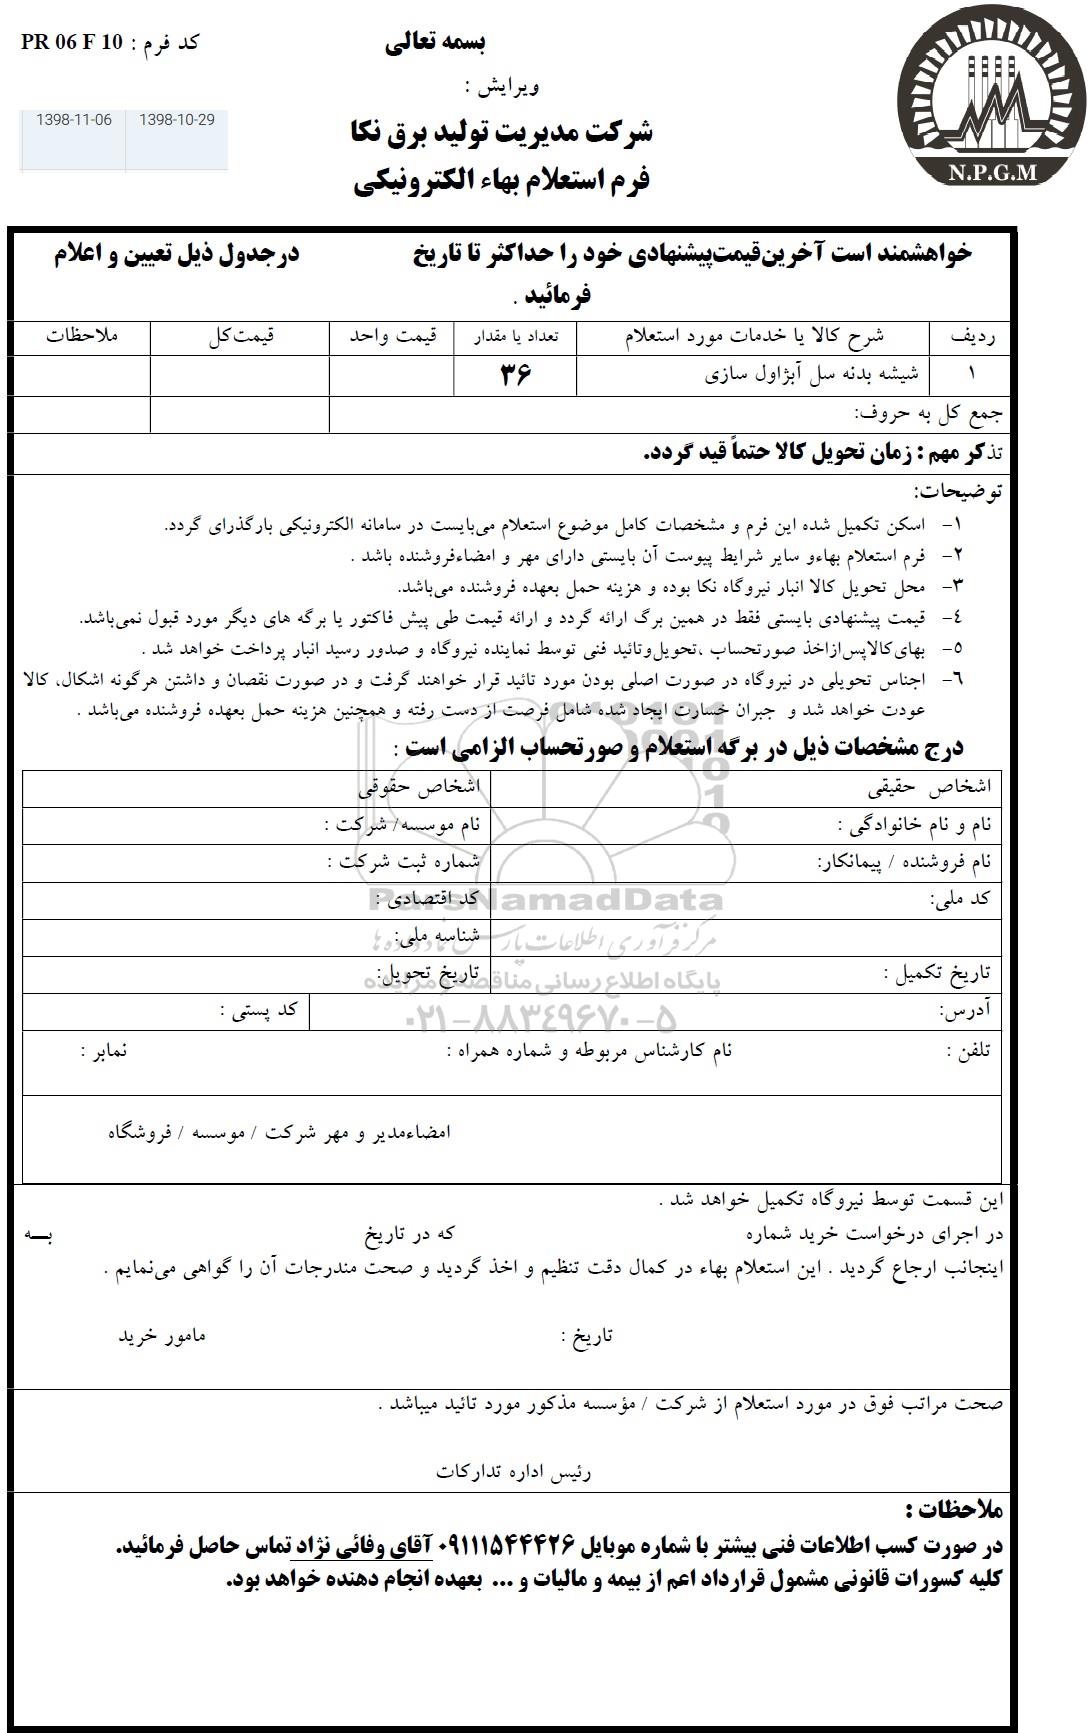 بسمه تعالی
کد فرم : PR 06 F 10
ویرایش :
1398-11-06 1398-10-29
شرکت مدیریت تولید برق نکا
فرم استعلام بهاء الکترونیکی
N.P.G.M
خواهشمند است آخرین‌قیمت‌پیشنهادی خود را حداکثر تا تاریخ درجدول ذیل تعیین و اعلام
فرمائید .
ردیف شرح کالا یا خدمات مورد استعلام تعداد یا مقدار قیمت واحد قیمت‌کل ملاحظات
۱ شیشه بدنه سل آبژاول سازی ۳۶
جمع کل به حروف:
تذکر مهم : زمان تحویل کالا حتماً قید گردد.
توضیحات:
۱- اسکن تکمیل شده این فرم و مشخصات کامل موضوع استعلام می‌بایست در سامانه الکترونیکی بارگذرای گردد.
۲- فرم استعلام بهاءو سایر شرایط پیوست آن بایستی دارای مهر و امضاءفروشنده باشد .
۳- محل تحویل کالا انبار نیروگاه نکا بوده و هزینه حمل بعهده فروشنده می‌باشد.
۴- قیمت پیشنهادی بایستی فقط در همین برگ ارائه گردد و ارائه قیمت طی پیش فاکتور یا برگه های دیگر مورد قبول نمی‌باشد.
۵- بهای‌کالاپس‌ازاخذ صورتحساب ،تحویل‌وتائید فنی توسط نماینده نیروگاه و صدور رسید انبار پرداخت خواهد شد .
۶- اجناس تحویلی در نیروگاه در صورت اصلی بودن مورد تائید قرار خواهند گرفت و در صورت نقصان و داشتن هرگونه اشکال، کالا
عودت خواهد شد و جبران خسارت ایجاد شده شامل فرصت از دست رفته و همچنین هزینه حمل بعهده فروشنده می‌باشد .
درج مشخصات ذیل در برگه استعلام و صورتحساب الزامی است :
اشخاص حقیقی اشخاص حقوقی
نام و نام خانوادگی : نام موسسه/ شرکت :
نام فروشنده / پیمانکار: شماره ثبت شرکت :
کد ملی: کد اقتصادی :
ParsNamadData
شناسه ملی:
مرکز فرآوری اطلاعات پارس نماد داده ها
تاریخ تکمیل : تاریخ تحویل:
پایگاه اطلاع رسانی مناقصه و مزایده
آدرس: کد پستی :
۰۲۱-۸۸۳۴۹۶۷۰-۵
تلفن : نام کارشناس مربوطه و شماره همراه : نمابر :
امضاءمدیر و مهر شرکت / موسسه / فروشگاه
این قسمت توسط نیروگاه تکمیل خواهد شد .
در اجرای درخواست خرید شماره که در تاریخ به
اینجانب ارجاع گردید . این استعلام بهاء در کمال دقت تنظیم و اخذ گردید و صحت مندرجات آن را گواهی می‌نمایم .
تاریخ : مامور خرید
صحت مراتب فوق در مورد استعلام از شرکت / مؤسسه مذکور مورد تائید میباشد .
رئیس اداره تدارکات
ملاحظات :
در صورت کسب اطلاعات فنی بیشتر با شماره موبایل ۰۹۱۱۱۵۴۴۴۲۶ آقای وفائی نژاد تماس حاصل فرمائید.
کلیه کسورات قانونی مشمول قرارداد اعم از بیمه و مالیات و ... بعهده انجام دهنده خواهد بود.